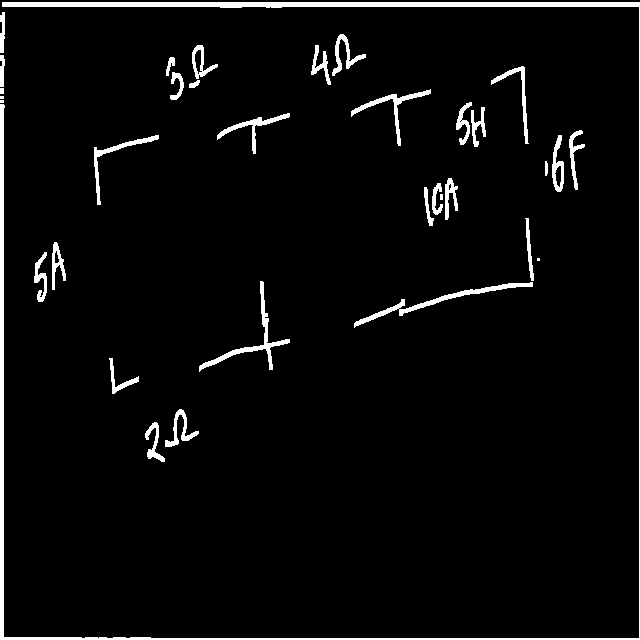 3Ω
4Ω
5H
6F
10A
5A
2Ω